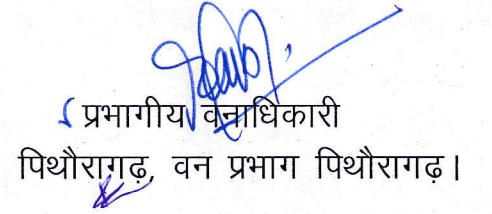 प्रभागीय वनाधिकारी
पिथौरागढ़, वन प्रभाग पिथौरागढ़।